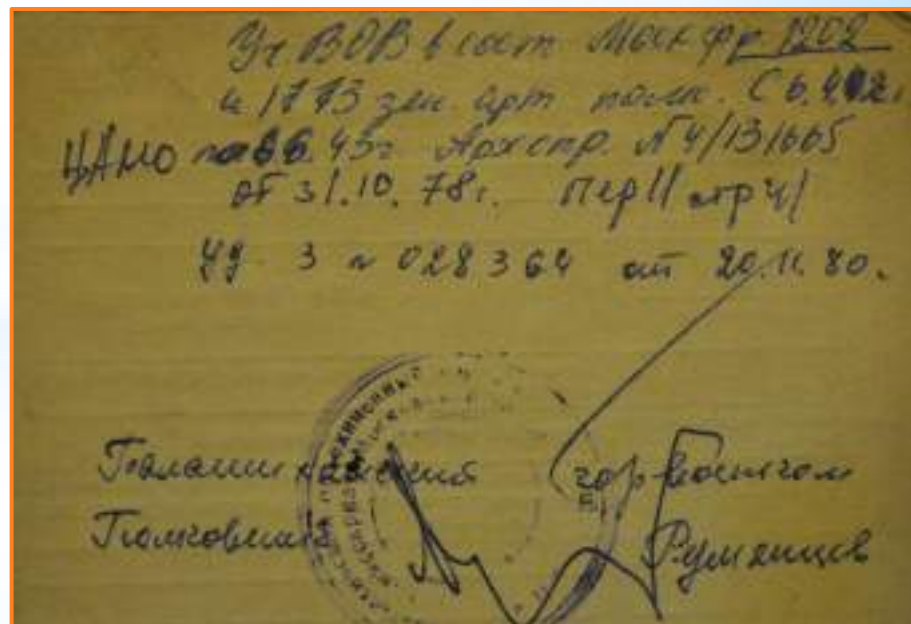 Уч ВОВ в сост Моск фр 1202
и 1773 зен арт полк. С 6.4.42г
ЦАМО по 6.45г Арх спр. №4/131665
от 31.10.78г. Пер 11 стр 41
Уд. З № 028364 от 20.11.80.
Балашихинский горвоенком
Полковник Румянцев